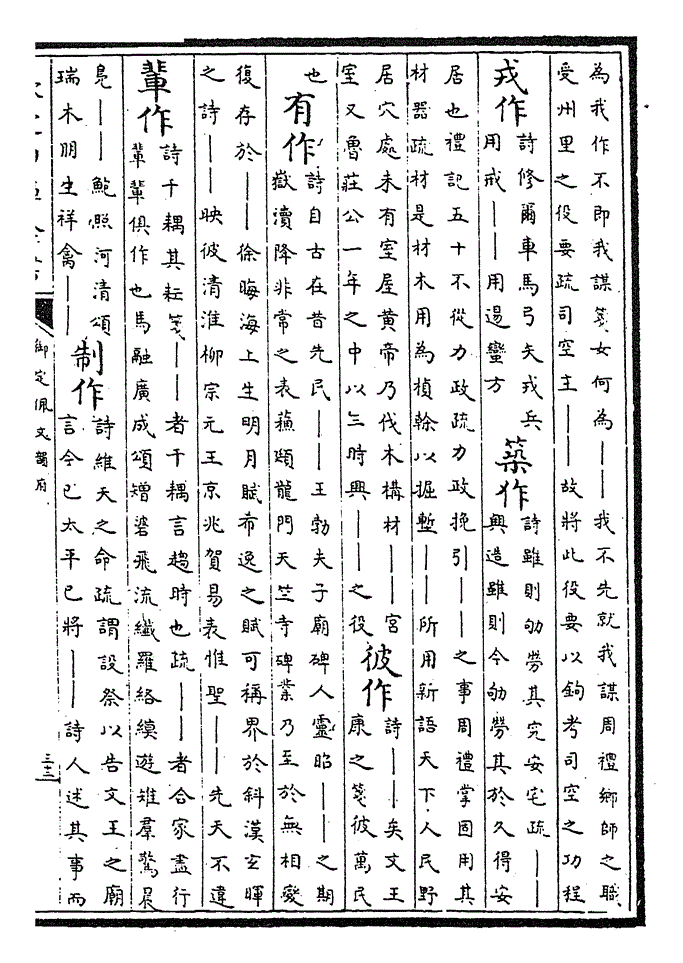 為我作不即我謀箋女何為――我不先就我謀周禮鄉師之職
受州里之役要疏司空主――故將此役要以鉤考司空之功程
戎作
詩修爾車馬弓矢戎兵
用戒――用逷蠻方
築作
詩雖則劬勞其究安宅疏――
興造雖則今劬勞其於久得安
居也禮記五十不從力政疏力政挽引――之事周禮掌固用其
材器疏材是材木用為楨榦以掘塹――所用新語天下人民野
居穴處未有室屋黄帝乃伐木構材――宮
室又魯莊公一年之中以三時興――之役
彼作
詩――矣文王
康之箋彼萬民
也
有作
詩自古在昔先民――王勃夫子廟碑人靈昭――之期
嶽瀆降非常之表蘓頲龍門天竺寺碑業乃至於無相變
復存於――徐晦海上生明月賦希逸之賦可稱界於斜漢玄暉
之詩――映彼清淮柳宗元王京兆賀易表惟聖――先天不違
輩作
詩千耦其耘箋――者千耦言趨時也疏――者合家盡行
輩輩俱作也馬融廣成頌矰碆飛流纎羅絡縸遊雉羣驚晨
鳧――鮑照河清頌
瑞木朋生祥禽――
制作
詩維天之命疏謂設祭以告文王之廟
言今已太平已將――詩人述其事而
御定佩文韻府